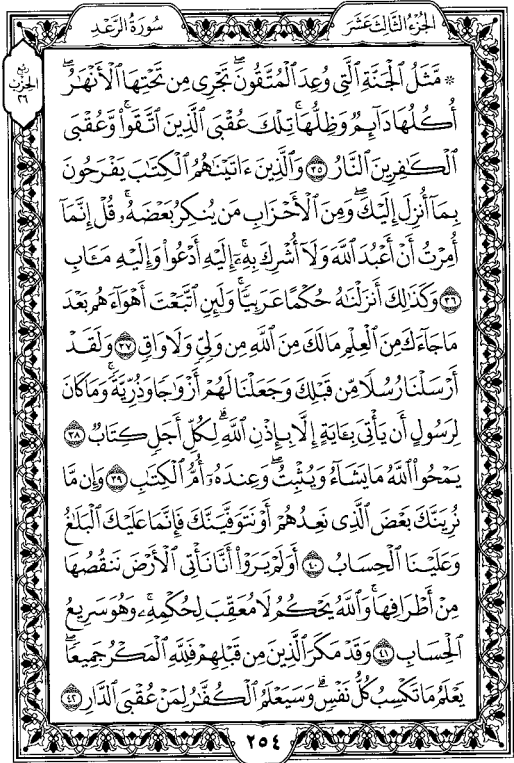 الجُزْءُ الثَّالِثَ عَشَرَ
سُورَةُ الرَّعْدِ
رُبْع
الحِزْب
٢٦
۞ مَّثَلُ ٱلْجَنَّةِ ٱلَّتِى وُعِدَ ٱلْمُتَّقُونَۖ تَجْرِى مِن تَحْتِهَا ٱلْأَنْهَٰرُۖ
أُكُلُهَا دَآئِمٌ وَظِلُّهَاۚ تِلْكَ عُقْبَى ٱلَّذِينَ ٱتَّقَوا۟ۖ وَّعُقْبَى
ٱلْكَٰفِرِينَ ٱلنَّارُ ٣٥ وَٱلَّذِينَ ءَاتَيْنَٰهُمُ ٱلْكِتَٰبَ يَفْرَحُونَ
بِمَآ أُنزِلَ إِلَيْكَۖ وَمِنَ ٱلْأَحْزَابِ مَن يُنكِرُ بَعْضَهُۥۚ قُلْ إِنَّمَآ
أُمِرْتُ أَنْ أَعْبُدَ ٱللَّهَ وَلَآ أُشْرِكَ بِهِۦٓۚ إِلَيْهِ أَدْعُوا۟ وَإِلَيْهِ مَـَٔابِ
٣٦ وَكَذَٰلِكَ أَنزَلْنَٰهُ حُكْمًا عَرَبِيًّاۚ وَلَئِنِ ٱتَّبَعْتَ أَهْوَآءَهُم بَعْدَ
مَا جَآءَكَ مِنَ ٱلْعِلْمِ مَا لَكَ مِنَ ٱللَّهِ مِن وَلِىٍّ وَلَا وَاقٍ ٣٧ وَلَقَدْ
أَرْسَلْنَا رُسُلًا مِّن قَبْلِكَ وَجَعَلْنَا لَهُمْ أَزْوَٰجًا وَذُرِّيَّةًۚ وَمَا كَانَ
لِرَسُولٍ أَن يَأْتِىَ بِـَٔايَةٍ إِلَّا بِإِذْنِ ٱللَّهِۗ لِكُلِّ أَجَلٍ كِتَابٌ ٣٨
يَمْحُوا۟ ٱللَّهُ مَا يَشَآءُ وَيُثْبِتُۖ وَعِندَهُۥٓ أُمُّ ٱلْكِتَٰبِ ٣٩ وَإِن مَّا
نُرِيَنَّكَ بَعْضَ ٱلَّذِى نَعِدُهُمْ أَوْ نَتَوَفَّيَنَّكَ فَإِنَّمَا عَلَيْكَ ٱلْبَلَٰغُ
وَعَلَيْنَا ٱلْحِسَابُ ٤٠ أَوَلَمْ يَرَوْا۟ أَنَّا نَأْتِى ٱلْأَرْضَ نَنقُصُهَا
مِنْ أَطْرَافِهَاۚ وَٱللَّهُ يَحْكُمُ لَا مُعَقِّبَ لِحُكْمِهِۦۚ وَهُوَ سَرِيعُ
ٱلْحِسَابِ ٤١ وَقَدْ مَكَرَ ٱلَّذِينَ مِن قَبْلِهِمْ فَلِلَّهِ ٱلْمَكْرُ جَمِيعًاۖ
يَعْلَمُ مَا تَكْسِبُ كُلُّ نَفْسٍۗ وَسَيَعْلَمُ ٱلْكُفَّٰرُ لِمَنْ عُقْبَى ٱلدَّارِ ٤٢
٢٥٤